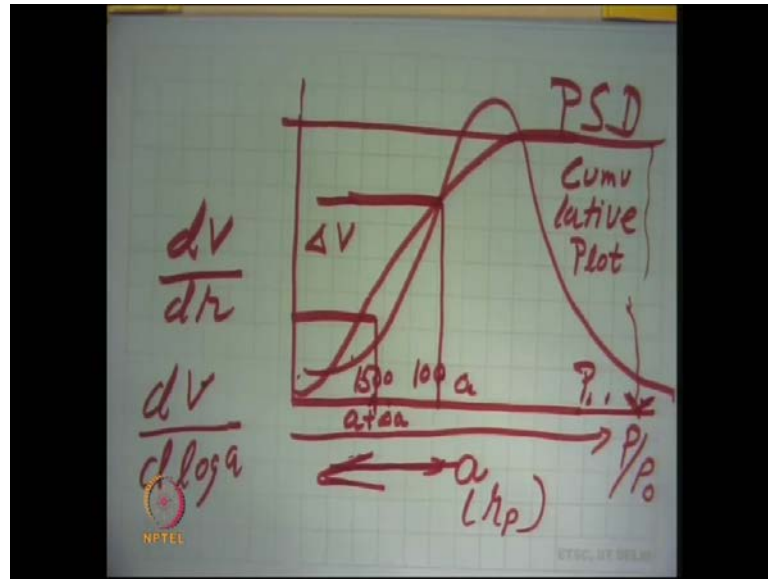 PSD
Cumu
lative
Plot
ΔV
dV
dr
dV
d log a
1500
100
a
a+Δa
P/P₀
a
(rₚ)
NPTEL
ETSC, IIT DELHI